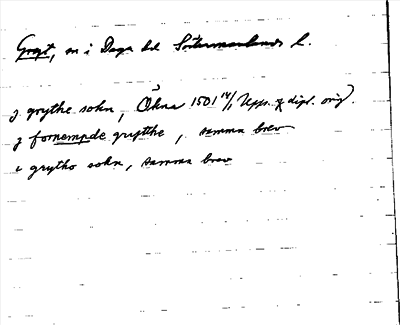 Gryt, sn i Daga hd Södermanlands l.
j grythe sokn, Økna 1501 14/1 Upps. q dipl. orig.
j fornempde grytthe, samma brev
i grytho sokn, samma brev